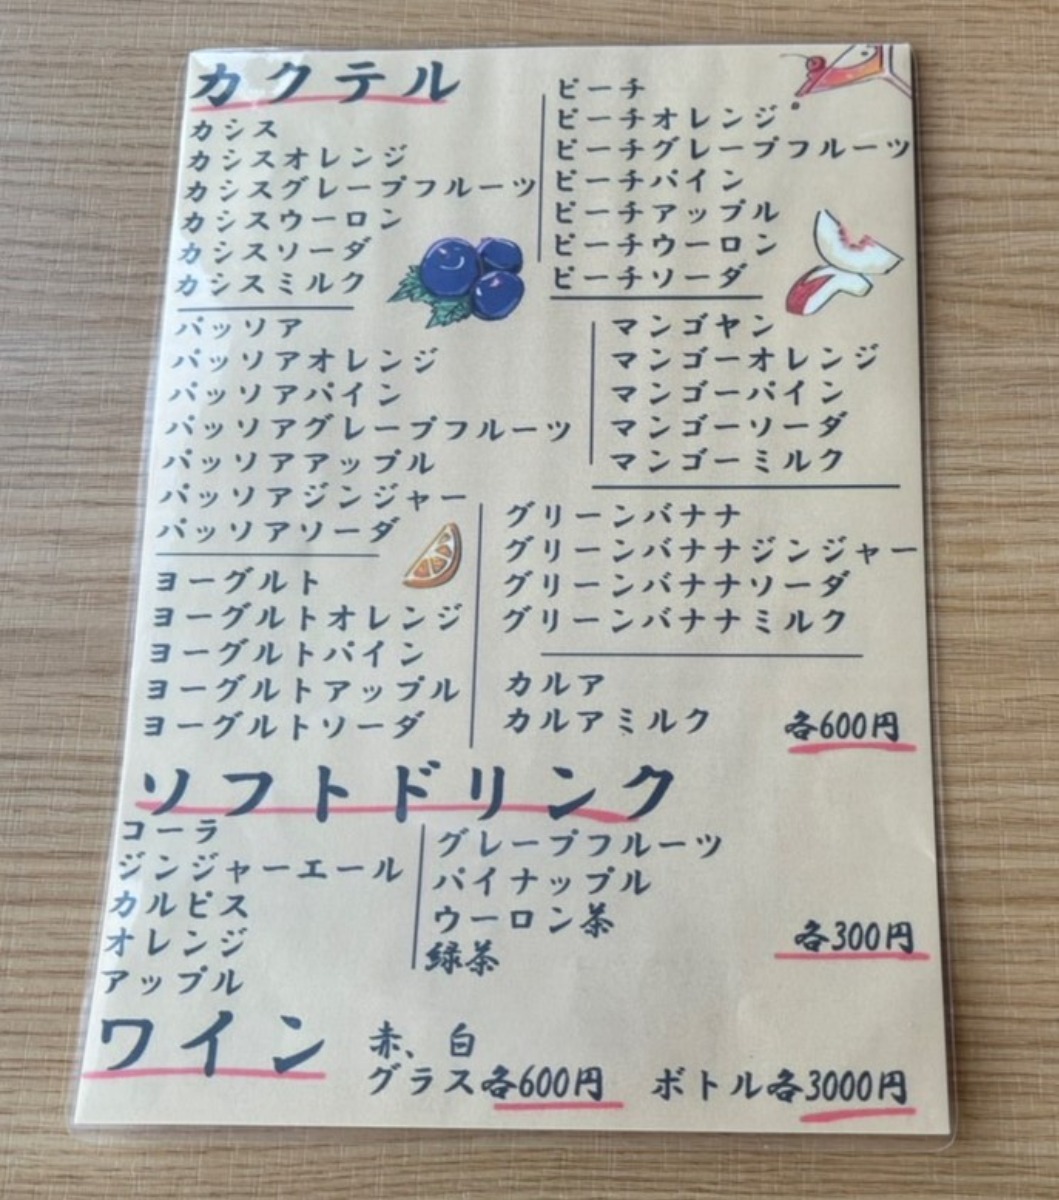 カクテル
カシス
カシスオレンジ
カシスグレープフルーツ
カシスウーロン
カシスソーダ
カシスミルク
ピーチ
ピーチオレンジ
ピーチグレープフルーツ
ピーチパイン
ピーチアップル
ピーチウーロン
ピーチソーダ
パッソア
パッソアオレンジ
パッソアパイン
パッソアグレープフルーツ
パッソアアップル
パッソアジンジャー
パッソアソーダ
マンゴヤン
マンゴーオレンジ
マンゴーパイン
マンゴーソーダ
マンゴーミルク
ヨーグルト
ヨーグルトオレンジ
ヨーグルトパイン
ヨーグルトアップル
ヨーグルトソーダ
グリーンバナナ
グリーンバナナジンジャー
グリーンバナナソーダ
グリーンバナナミルク
カルア
カルアミルク
各600円
ソフトドリンク
コーラ
ジンジャーエール
カルピス
オレンジ
アップル
グレープフルーツ
パイナップル
ウーロン茶
緑茶
各300円
ワイン
赤、白
グラス各600円 ボトル各3000円